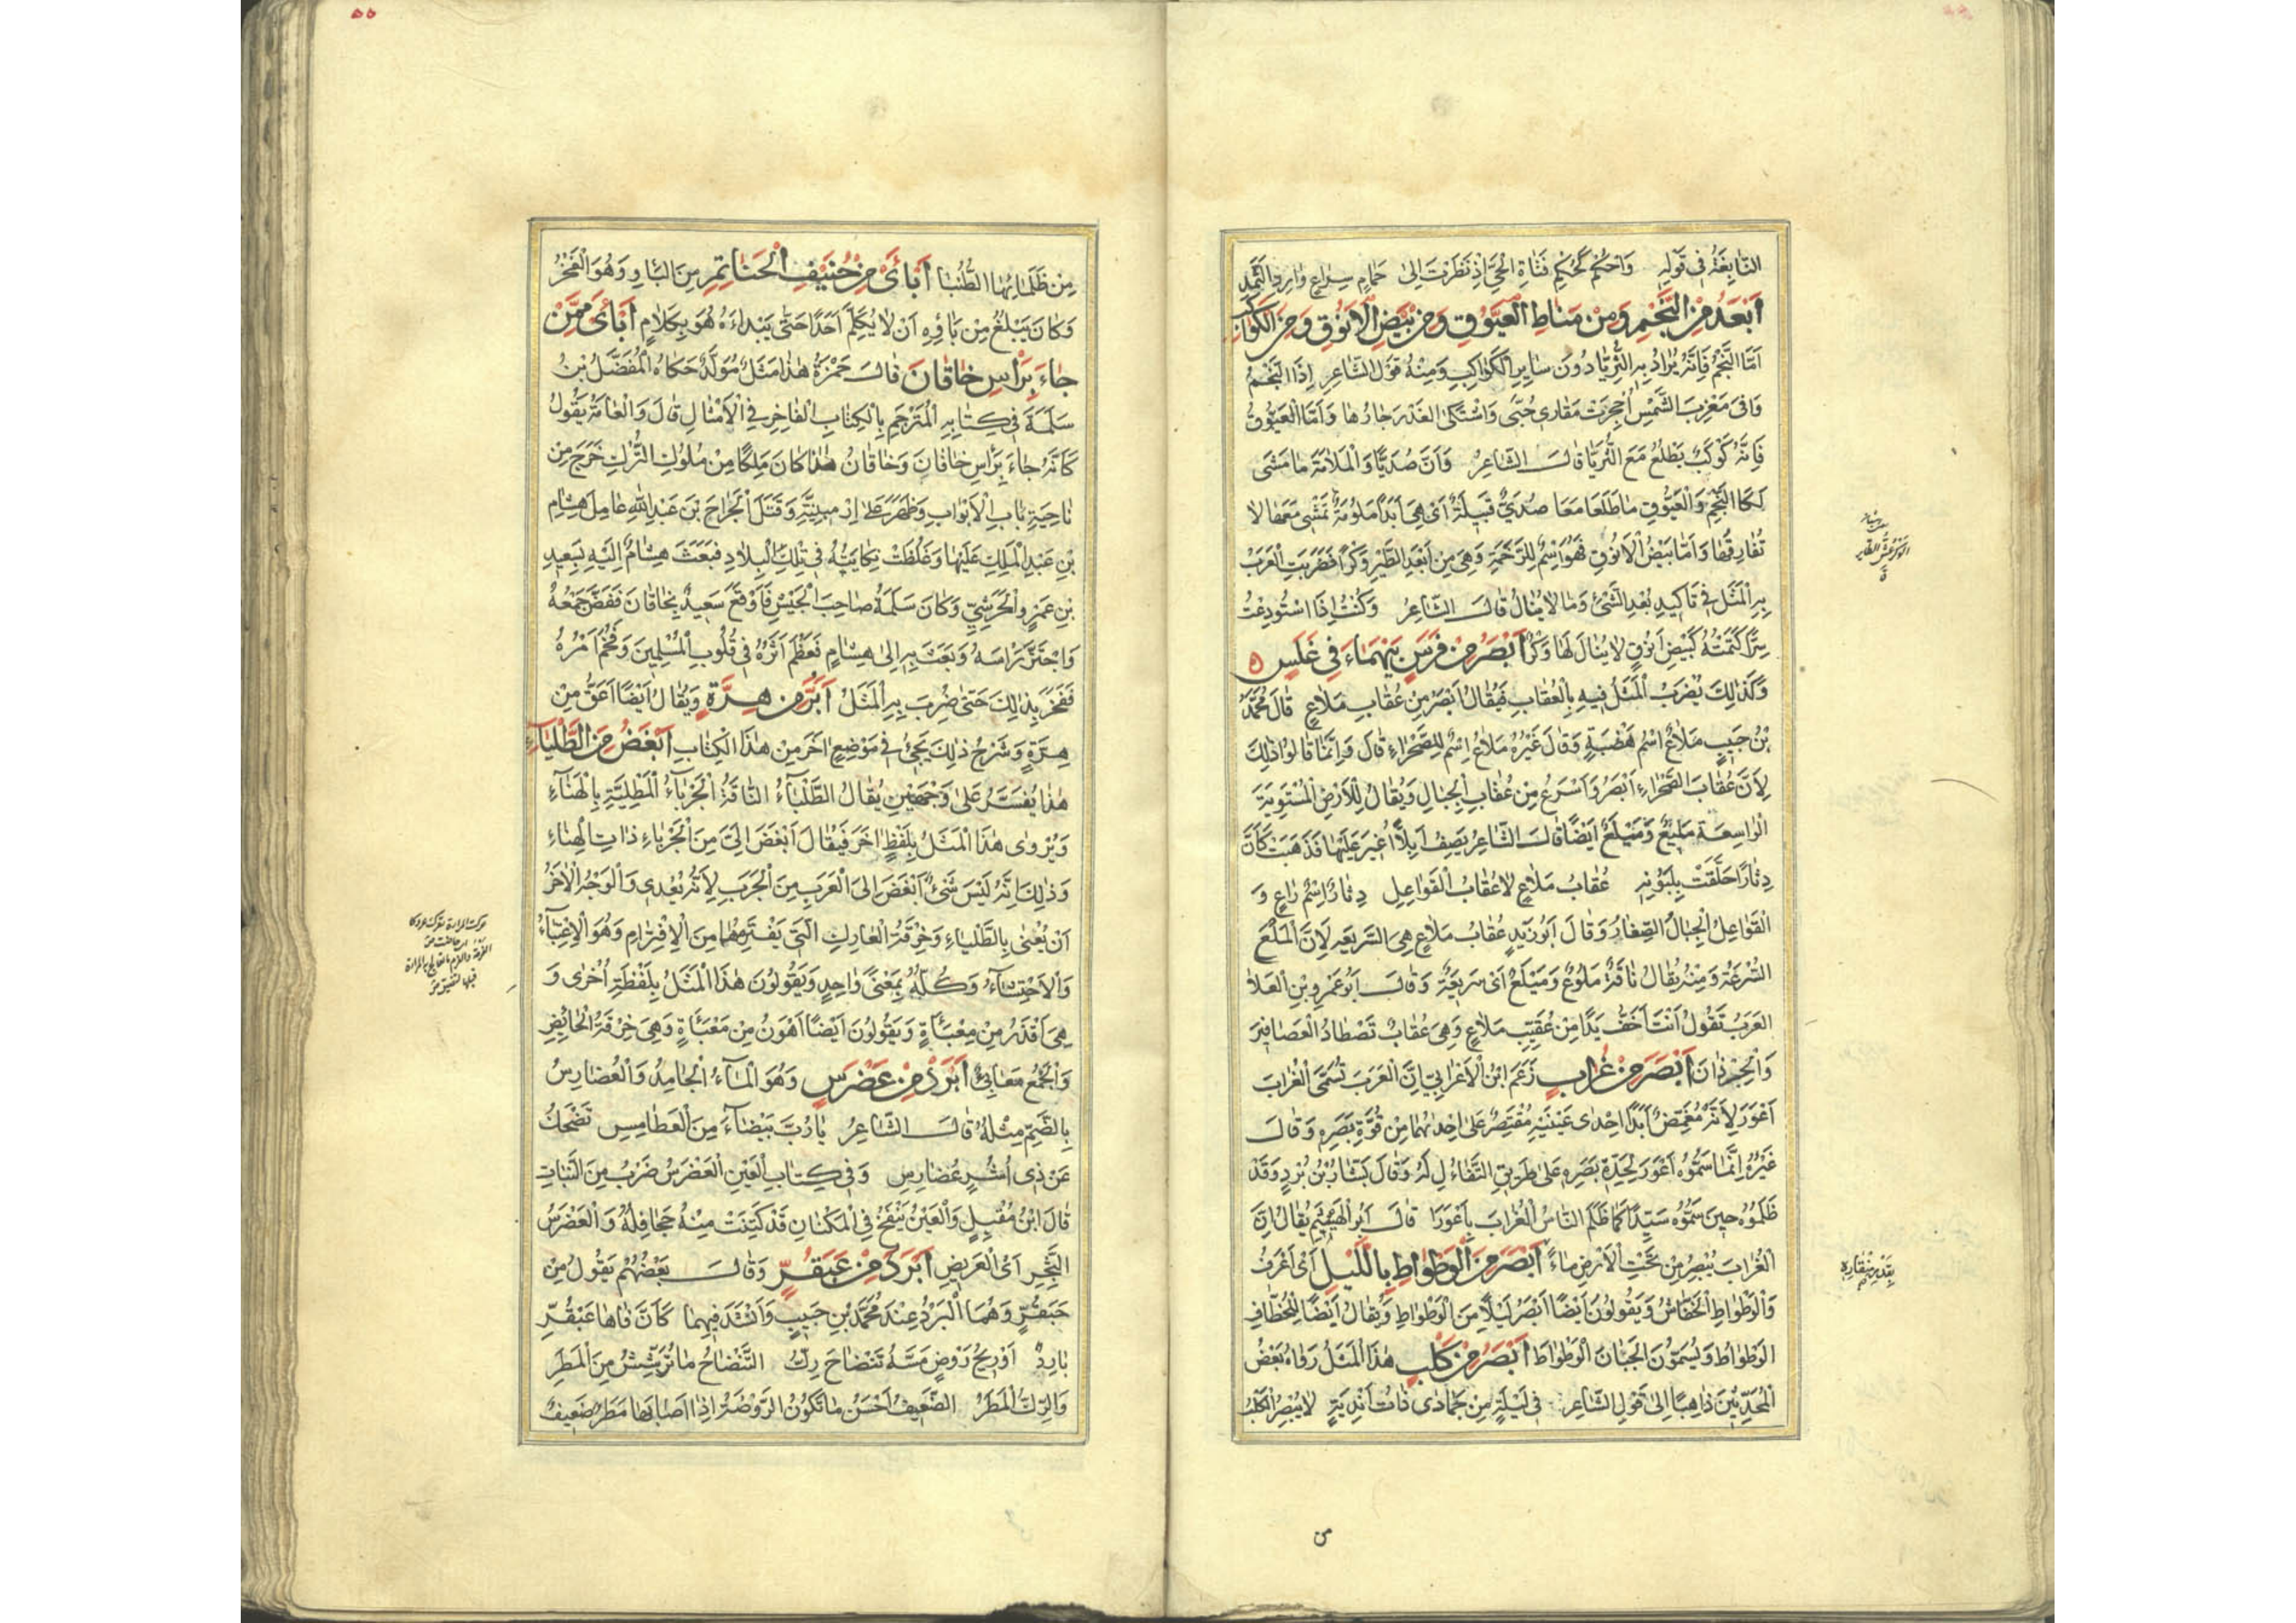 النابغة في قوله واحكم كحكم فتاة الحي اذ نظرت الى حمام سراع وارد الثمد
أَبْعَدُ مِنَ النَّجْمِ وَمِنْ مَنَاطِ العَيُّوقِ وَمِنْ بَيْضِ الْاَنُوقِ وَمِنَ الكَواكِبِ
اَمَّا النَّجْمُ فَاِنَّهُ يُرَادُ بِهِ الثُّرَيَّا دُونَ سَايِرِ الْكَوَاكِبِ وَمِنْهُ قَوْلُ الشَّاعِرِ اِذَا النَّجْمُ
وَافَى مَغْرِبَ الشَّمْسِ اُجْحِرَتْ مَقَارِي حُيَىّ وَاشْتَكَى الْغَدْرَ جَارُهَا وَاَمَّا الْعَيُّوقُ
فَاِنَّهُ كَوْكَبٌ يَطْلُعُ مَعَ الثُّرَيَّا قَالَ الشَّاعِرُ وَاَنَّ صُدَيًّا وَالْمَلَامَةَ مَا مَشَى
لَكَا النَّجْمِ وَالْعَيُّوقِ مَا طَلَعَا مَعَا صُدَيٌّ قَبِيلَةٌ اَىْ هِىَ اَبَدًا مَلُومَةٌ تَمْشِى مَعَهَا لَا
تُفَارِقُهَا وَاَمَّا بَيْضُ الْاَنُوقِ فَهُوَ اسْمٌ لِلرَّخَمَةِ وَهِىَ مِنْ اَبْعَدِ الطَّيْرِ وَكْرًا فَضَرَبَتِ الْعَرَبُ
بِهِ الْمَثَلَ فِى تَاكِيدِ بُعْدِ الشَّىْءِ وَمَا لَا يُنَالُ قَالَ الشَّاعِرُ وَكُنْتُ اِذَا اسْتُودِعْتُ
سِرًّا كَتَمْتُهُ كَبَيْضِ اَنُوقٍ لَا يُنَالُ لَهَا وَكْرُ أَبْصَرُ مِنْ فَرَسٍ يَهْمَاءَ فِى غَلَسٍ
وَكَذٰلِكَ يُضْرَبُ الْمَثَلُ فِيهِ بِالْعُقَابِ فَيُقَالُ اَبْصَرُ مِنْ عُقَابِ مَلَاعِ قَالَ مُحَمَّدُ
بْنُ حَبِيبٍ مَلَاعُ اسْمُ هَضْبَةٍ وَقَالَ غَيْرُهُ مَلَاعُ اِسْمٌ لِلصَّحْرَاءِ قَالَ وَاِنَّمَا قَالُوا ذٰلِكَ
لِاَنَّ عُقَابَ الصَّحْرَاءِ اَبْصَرُ وَاَسْرَعُ مِنْ عُقَابِ الْجِبَالِ وَيُقَالُ لِلْاَرْضِ الْمُسْتَوِيَةِ
الْوَاسِعَةِ مَلِيعٌ وَمَيْلَعٌ اَيْضًا قَالَ الشَّاعِرُ يَصِفُ اِبِلًا اُغِيرَ عَلَيْهَا فَذَهَبَتْ كَاَنَّ
دِثَارًا حَلَّقَتْ بِلَبُونِهِ عُقَابُ مَلَاعٍ لَا عُقَابُ الْقَوَاعِلِ دِثَارٌ اِسْمُ رَاعٍ وَ
الْقَوَاعِلُ الْجِبَالُ الصِّغَارُ وَقَالَ اَبُو زَيْدٍ عُقَابُ مَلَاعٍ هِىَ السَّرِيعَةُ لِاَنَّ الْمَلْعَ
السُّرْعَةُ وَمِنْهُ يُقَالُ نَاقَةٌ مَلُوعٌ وَمَيْلَعٌ اَىْ سَرِيعَةٌ وَقَالَ اَبُو عَمْرِو بْنِ الْعَلَا
الْعَرَبُ تَقُولُ اَنْتَ اَخَفُّ يَدًا مِنْ عُقَيِّبِ مَلَاعٍ وَهِىَ عُقَابٌ تَصْطَادُ الْعَصَافِيرَ
وَالْجِرْذَانَ أَبْصَرَ مِنْ غُرَابٍ زَعَمَ ابْنُ الْاَعْرَابِيِّ اِنَّ الْعَرَبَ تُسَمِّى الْغُرَابَ
اَعْوَرَ لِاَنَّهُ مُغَمِّضٌ اَبَدًا اِحْدٰى عَيْنَيْهِ مُقْتَصِرٌ عَلَى اِحْدٰيهُمَا مِنْ قُوَّةِ بَصَرِهِ وَقَالَ
غَيْرُهُ اِنَّمَا سَمَّوْهُ اَعْوَرَ لِحِدَّةِ بَصَرِهِ عَلَى طَرِيقِ التَّفَاءُلِ لَهُ وَقَالَ بَشَّارُ بْنُ بُرْدٍ وَقَدْ
ظَلَمُوهُ حِينَ سَمَّوْهُ سَيِّدًا كَمَا ظَلَمَ النَّاسُ الْغُرَابَ بِاَعْوَرَا قَالَ اَبُو الْهَيْثَمِ يُقَالُ اِنَّ
الْغُرَابَ يُبْصِرُ مِنْ تَحْتِ الْاَرْضِ مَاءً أَبْصَرَ مِنَ الْوَطْوَاطِ بِاللَّيْلِ اَىْ اَعْرَفُ
وَالْوَطْوَاطُ الْخَفَّاشُ وَيَقُولُونَ اَيْضًا اَبْصَرُ لَيْلًا مِنَ الْوَطْوَاطِ وَيُقَالُ اَيْضًا لِلْخُطَّافِ
الْوَطْوَاطُ وَيُسَمُّونَ الْجَبَانَ الْوَطْوَاطَ أَبْصَرُ مِنْ كَلْبٍ هٰذَا الْمَثَلُ رَوَاهُ بَعْضُ
الْمُحَدِّثِينَ ذَاهِبًا اِلَى قَوْلِ الشَّاعِرِ فِى لَيْلَةٍ مِنْ جُمَادٰى ذَاتِ اَنْدِيَةٍ لَا يُبْصِرُ الْكَلْبُ
الوكر عش الطاير
بقدر منقاره
من
٥٥
مِنْ ظَلْمَائِهَا الطُّنُبَا أَبْأَى مِنْ حُنَيْفِ الْحَنَاتِمِ مِنَ الْبَأْوِ وَهُوَ الْفَخْرُ
وَكَانَ يَبْلُغُ مِنْ بَاوِهِ اَنْ لَا يُكَلِّمَ اَحَدًا حَتَّى يَبْدَاءَهُ هُوَ بِكَلَامٍ أَبْأَى مِمَّنْ
جَاءَ بِرَأْسِ خَاقَانَ قَالَ حَمْزَةُ هٰذَا مَثَلٌ مُوَلَّدٌ حَكَاهُ الْمُفَضَّلُ بْنُ
سَلَمَةَ فِى كِتَابِهِ الْمُتَرْجَمِ بِالْكِتَابِ الْفَاخِرِ فِى الْاَمْثَالِ قَالَ وَالْعَامَّةُ يَقُولُ
كَاَنَّهُ جَاءَ بِرَاسِ خَاقَانَ وَخَاقَانُ هٰذَا كَانَ مَلِكًا مِنْ مُلُوكِ التُّرْكِ خَرَجَ مِنْ
نَاحِيَةِ بَابِ الْاَبْوَابِ وَظَهَرَ عَلَى اِرْمِينِيَّةِ وَقَتَلَ الْجَرَّاحَ بْنَ عَبْدِ اللّٰهِ عَامِلَ هِشَامِ
بْنِ عَبْدِ الْمَلِكِ عَلَيْهَا وَغَلُظَتْ نِكَايَتُهُ فِى تِلْكَ الْبِلَادِ فَبَعَثَ هِشَامٌ اِلَيْهِ بِسَعِيدِ
بْنِ عَمْرٍو الْحَرَشِيِّ وَكَانَ سَلَمَةُ صَاحِبَ الْجَيْشِ فَاَوْقَعَ سَعِيدٌ بِخَاقَانَ فَفَضَّ جَمْعَهُ
وَاجْتَزَّ رَاسَهُ وَبَعَثَ بِهِ اِلَى هِشَامٍ فَعَظُمَ اَثَرُهُ فِى قُلُوبِ الْمُسْلِمِينَ وَفَخُمَ اَمْرُهُ
فَفَخَرَ بِذٰلِكَ حَتَّى ضُرِبَ بِهِ الْمَثَلُ أَبَرُّ مِنْ هِرَّةٍ وَيُقَالُ اَيْضًا اَعَقُّ مِنْ
هِرَّةٍ وَشَرْحُ ذٰلِكَ يَجِىءُ فِى مَوْضِعٍ اٰخَرَ مِنْ هٰذَا الْكِتَابِ أَبْغَضُ مِنَ الطَّلْيَاءِ
هٰذَا يُفَسَّرُ عَلَى وَجْهَيْنِ يُقَالُ الطَّلْيَاءُ النَّاقَةُ الْجَرْبَاءُ الْمَطْلِيَّةُ بِالْهَنَاءِ
وَيُرْوٰى هٰذَا الْمَثَلُ بِلَفْظٍ اٰخَرَ فَيُقَالُ اَبْغَضُ اِلَىَّ مِنَ الْجَرْبَاءِ ذَاتِ الْهِنَاءِ
وَذٰلِكَ اِنَّهُ لَيْسَ شَىْءٌ اَبْغَضَ اِلَى الْعَرَبِ مِنَ الْجَرَبِ لِاَنَّهُ يُعْدِى وَالْوَجْهُ الْاٰخَرُ
اَنْ يُعْنٰى بِالطَّلْيَاءِ وَخِرْقَةُ الْعَارِكِ الَّتِى يَفْتَرِمُهَا مِنَ الْاِفْتِرَامِ وَهُوَ الْاِعْتِبَاءُ
وَالْاِحْتِشَاءُ وَكُلُّهُ بِمَعْنًى وَاحِدٍ وَيَقُولُونَ هٰذَا الْمَثَلُ بِلَفْظَةٍ اُخْرٰى وَ
هِىَ اَقْذَرُ مِنْ مِعْبَأَةٍ وَيَقُولُونَ اَيْضًا اَهْوَنُ مِنْ مَعْبَأَةٍ وَهِىَ خِرْقَةُ الْحَائِضِ
وَالْجَمْعُ مَعَابِئُ أَبْرَدُ مِنْ عَضْرَسٍ وَهُوَ الْمَاءُ الْجَامِدُ وَالْعُضَارِسُ
بِالضَّمِّ مِثْلُهُ قَالَ الشَّاعِرُ يَا رُبَّ بَيْضَاءَ مِنَ الْعَطَامِسِ تَضْحَكُ
عَنْ ذِى اُشُرٍ عُضَارِسِ وَفِى كِتَابِ الْعَيْنِ الْعَضْرَسُ ضَرْبٌ مِنَ النَّبَاتِ
قَالَ ابْنُ مُقْبِلٍ وَالْعَيْنُ يَنْفُخُ فِى الْمَكْنَانِ قَدْ كَتِنَتْ مِنْهُ جَحَافِلُهُ وَالْعَضْرَسُ
الثَّجِرِ اَىْ الْعَرِيضِ أَبْرَدُ مِنْ عَبَقُرٍّ وَقَالَ بَعْضُهُمْ يَقُولُ مِنْ
حَبَقُرٍّ وَهُمَا الْبَرْدُ عِنْدَ مُحَمَّدِ بْنِ حَبِيبٍ وَاَنْشَدَ فِيهِمَا كَاَنَّ فَاهَا عَبْقُرٌّ
بَارِدٌ اَوْ رِيحُ رَوْضٍ مَسَّهُ تَنْضَاحُ رِكّ التَّنْضَاحُ مَا تُرَشِّشُ مِنَ الْمَطَرِ
وَالرِّكُّ الْمَطَرُ الضَّعِيفُ اَحْسَنُ مَا تَكُونُ الرَّوْضَةُ اِذَا اَصَابَهَا مَطَرٌ ضَعِيفٌ